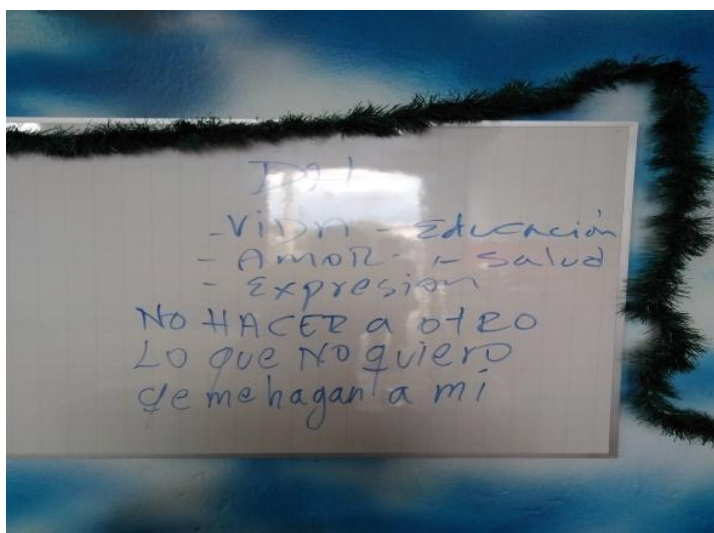 - VIDA - Educación
- AMOR - Salud
- Expresion
NO HACER a otRO
LO que NO quiero
qe me hagan a mi